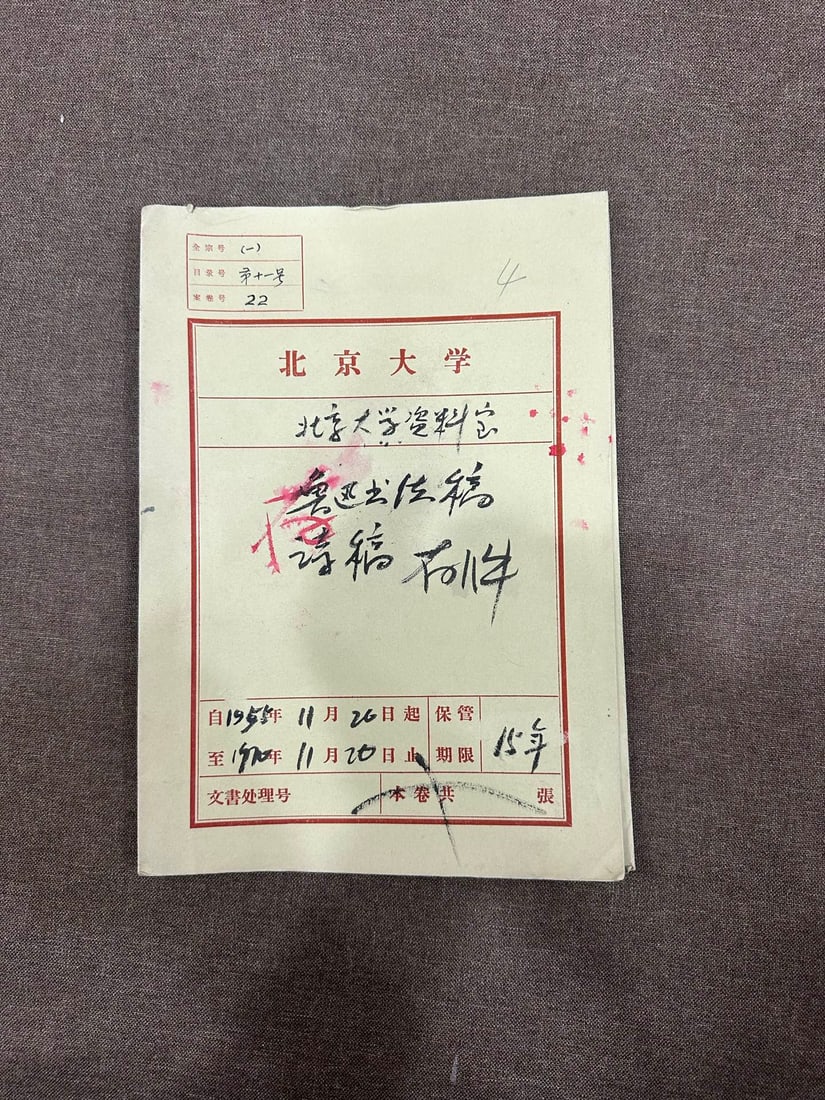 全宗号 (一)
目录号 第十一号
案卷号 22
4
北京大学
北京大学资料室
鲁迅书法稿
诗稿 有件
自1955年 11月 20日起 保管
至1970年 11月 20日止 期限 15年
文書处理号 本卷共 張